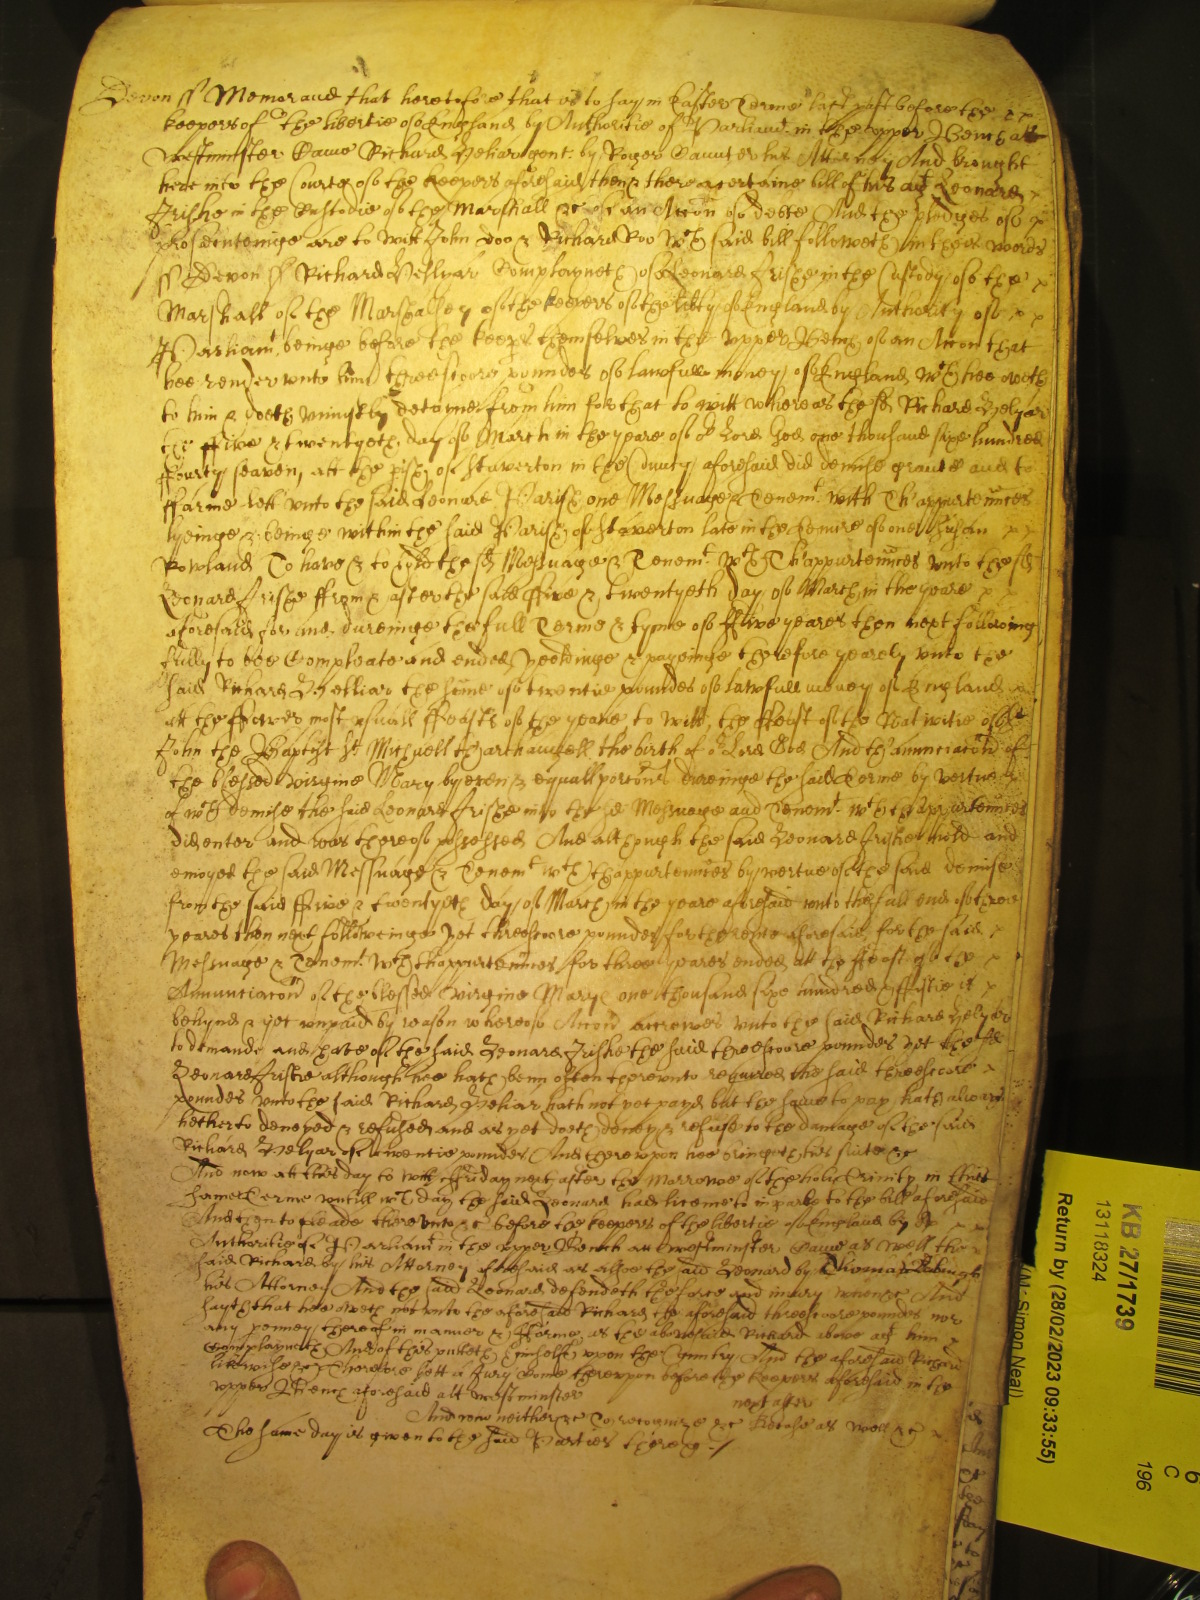 Devon ss Memorand that heretofore that is to say in Easter Terme last past before the
keepers of the libertie of England by Authoritie of Parliamt in the upper Bench att
westminster Came Richard Heliar gent by Roger Caunter his Attorney And brought
here into the Courte of the keepers aforesaid then & there a certaine bill of his agt Leonard
Frishe in the Custodie of the Marshall &c of an Accon of debte And the pledges of
prosecuteinge are to witt John Doo & Richard Roo wch said bill followeth in theis words
ss Devon ss Richard Hellyar Complayneth of Leonard Frishe in the Custody of the
Marshall of the Marshalsey of the keepers of the libty of England by Authority of
Parliamt beinge before the keeps themselves in the upper Bench of an Accon that
hee render unto him threescore poundes of lawfull money of England wch hee oweth
to him & doeth uniustly detaine from him for that to witt whereas the sd Richard Helyar
the ffive & twentyeth day of March in the yeare of or Lord God one thousand sixe hundred
ffourty seaven att the pish of Staverton in the County aforesaid did demise graunte and to
ffarme lett unto the said Leonard Parish one Messuage & Tenemt with Thappurtences
lyeinge & beinge within the said Parish of Staverton late in the tenure of one Susan
Rowland To have & to hold the sd Messuage & Tenemt wth Thappurtences unto the sd
Leonard Frishe ffrom & after the said ffive & twentyeth day of March in the yeare
aforesaid for and dureinge the full Terme & tyme of ffive yeares then next following
fully to bee Compleate and ended yeoldinge & payeinge therefore yearely unto the
said Richard Helliar the sume of twentie poundes of lawfull money of England
att the ffower most usuall ffeasts of the yeare to witt the ffeast of the Nativitie of St
John the Baptist St Michaell tharchangell the birth of or Lord God And thanunciacon of
the blessed virgine Mary by even & equall porcons dureinge the said Terme by vertue
of wch demise the said Leonard Frishe into the sd Messuage and Tenemt wth thappurtences
did enter and was thereof possessed And although the said Leonard Frishe hold and
enioyed the said Messuage & Tenemt wth thappurtences by vertue of the said demise
from the said ffive & twentyeth day of March in the yeare aforesaid unto the full end of three
yeares then next followeinge yet threescore poundes for the rent aforesaid for the said
Messuage & Tenemt wth thappurtences for three yeares ended att the ffeast of the
Annunciacon of the blessed virgine Mary one thousand sixe hundred & ffiftie is
behynd & yet unpaid by reason whereof Accon accrewes unto the said Richard Helyar
to demande and have of the said Leonard Frishe the said threescore poundes yet the sd
Leonard Frishe although hee hath benn often thereunto required the said threescore
poundes unto the said Richard Heliar hath not yet payd but the same to pay hath alwaies
hetherto denyed & refused and as yet doeth deney & refuse to the damage of the said
Richard Helyar of twentie poundes And thereupon hee bringeth his suite &c
And now att this day to witt ffriday next after the Morrowe of the holie Trinity in this
same Terme untill wch day the said Leonard had licence to imparle to the bill aforesaid
And then to pleade thereunto &c before the keepers of the libertie of England by
Authoritie of Parliamt in the upper Bench att westminster Came as well the
said Richard by his Attorney aforesaid as alsoe the said Leonard by Thomas
his Attorney And the said Leonard defendeth the force and iniury when &c And
sayth that hee oweth not unto the aforesaid Richard the aforesaid threescore poundes nor
any penney thereof in manner & fforme as the abovesaid Richard above agt him
Complayneth And of this putteth himselfe upon the Cuntry And the aforesaid Richard
likewise &c Therefore lett a Jury Come thereupon before the keepers aforesaid in the
upper Bench aforesaid att westminster next after
And who neither &c To recognize &c Because as well &c
The same day is given to the said Parties there &c
KB 27/1739
13118324
Return by (28/02/2023 09:33:55)
Simon Neal)
6
C
196